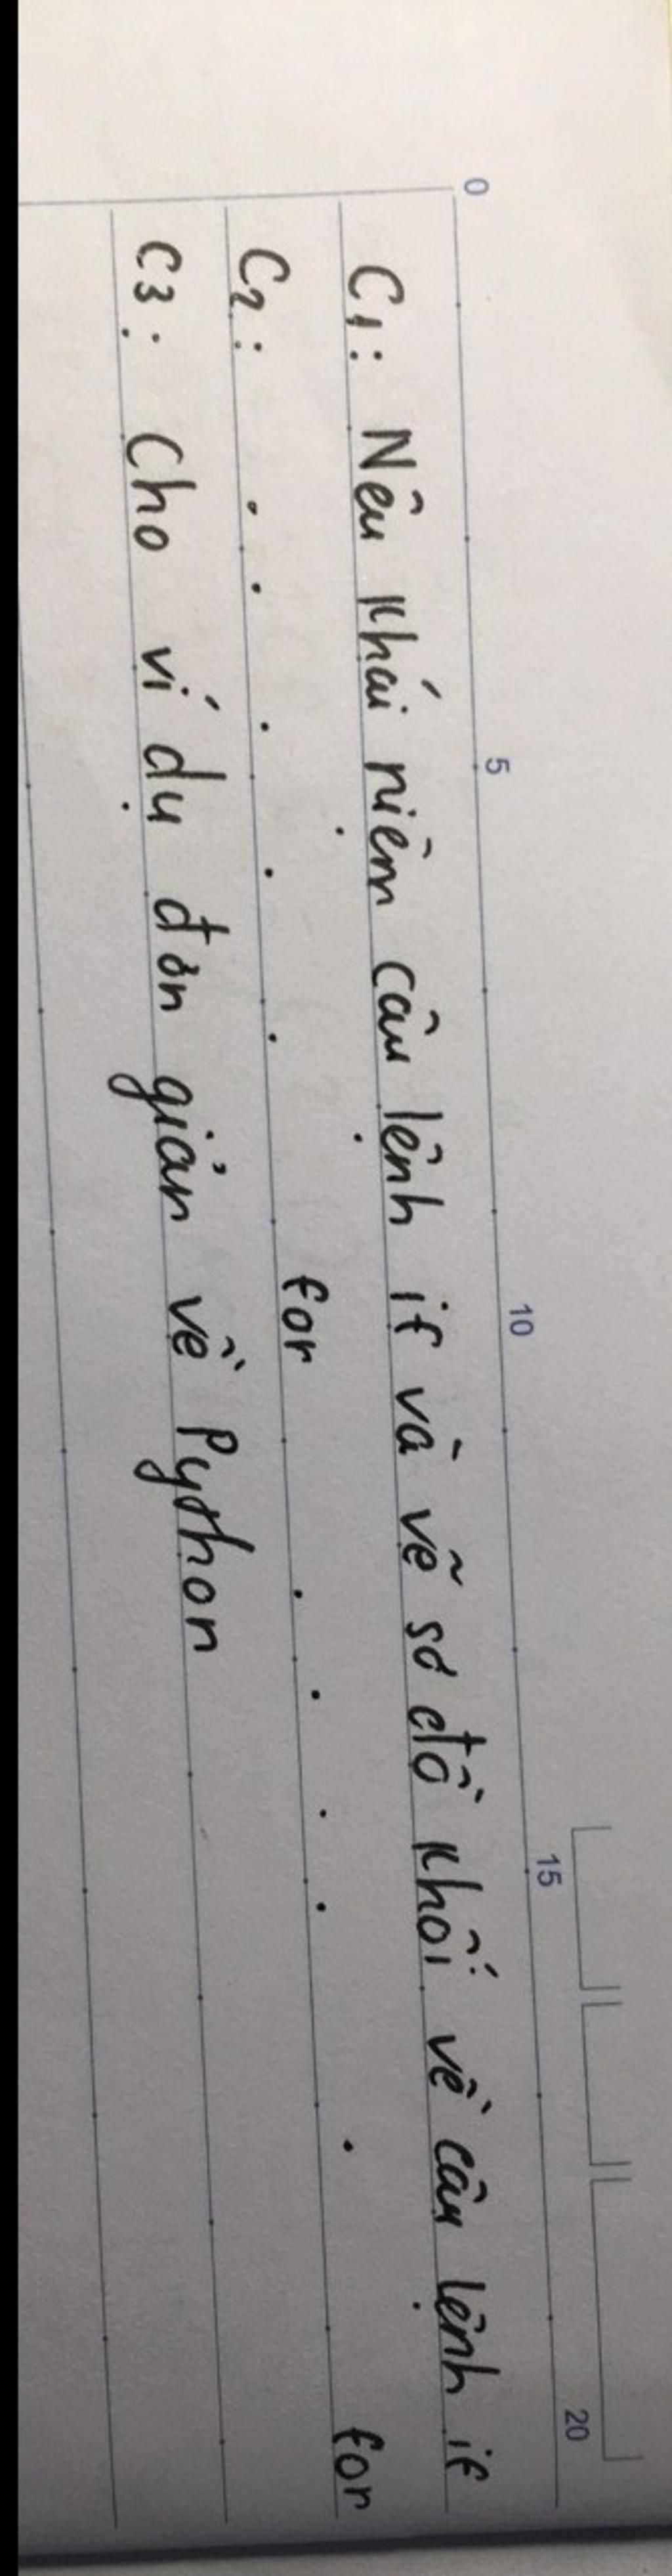 0 5 10 15 20
C1: Nêu khái niệm câu lệnh if và vẽ sơ đồ khối về câu lệnh if
C2: . . . . . for . . . . . for
C3: Cho ví dụ đơn giản về Python